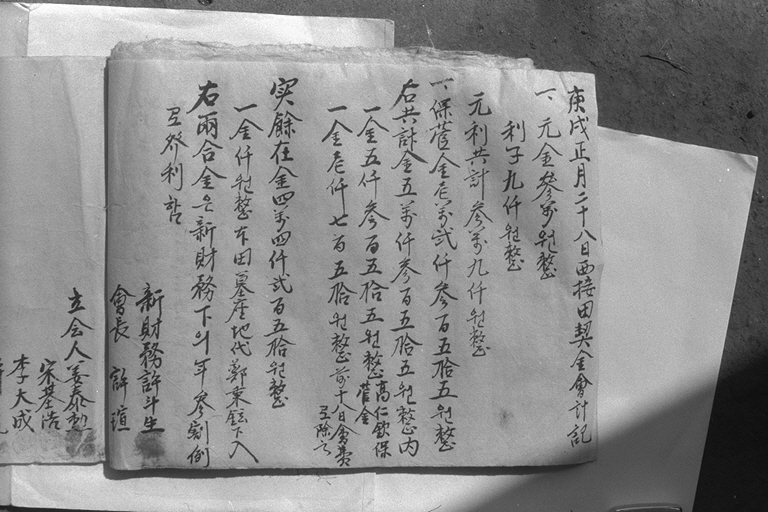 庚戌正月二十八日西接田契金會計記
一、元金參萬원整
利子九仟원整
元利共計參萬九仟원整
一、保管金壱萬弐仟參百五拾五원整
右共計金五萬仟參百五拾五원整內
一金五仟參百五拾五원整 高仁欽保管金
一金壱仟七百五拾원整 前十八日會費로除之
実餘在金四萬四仟弐百五拾원整
一金仟원整 本田墓座地代鄭東鉉下入
右兩合金은新財務下의年參割例
로졍利함
新財務許斗生
會長 許瑄
立会人姜泰勲
宋基浩
李大成